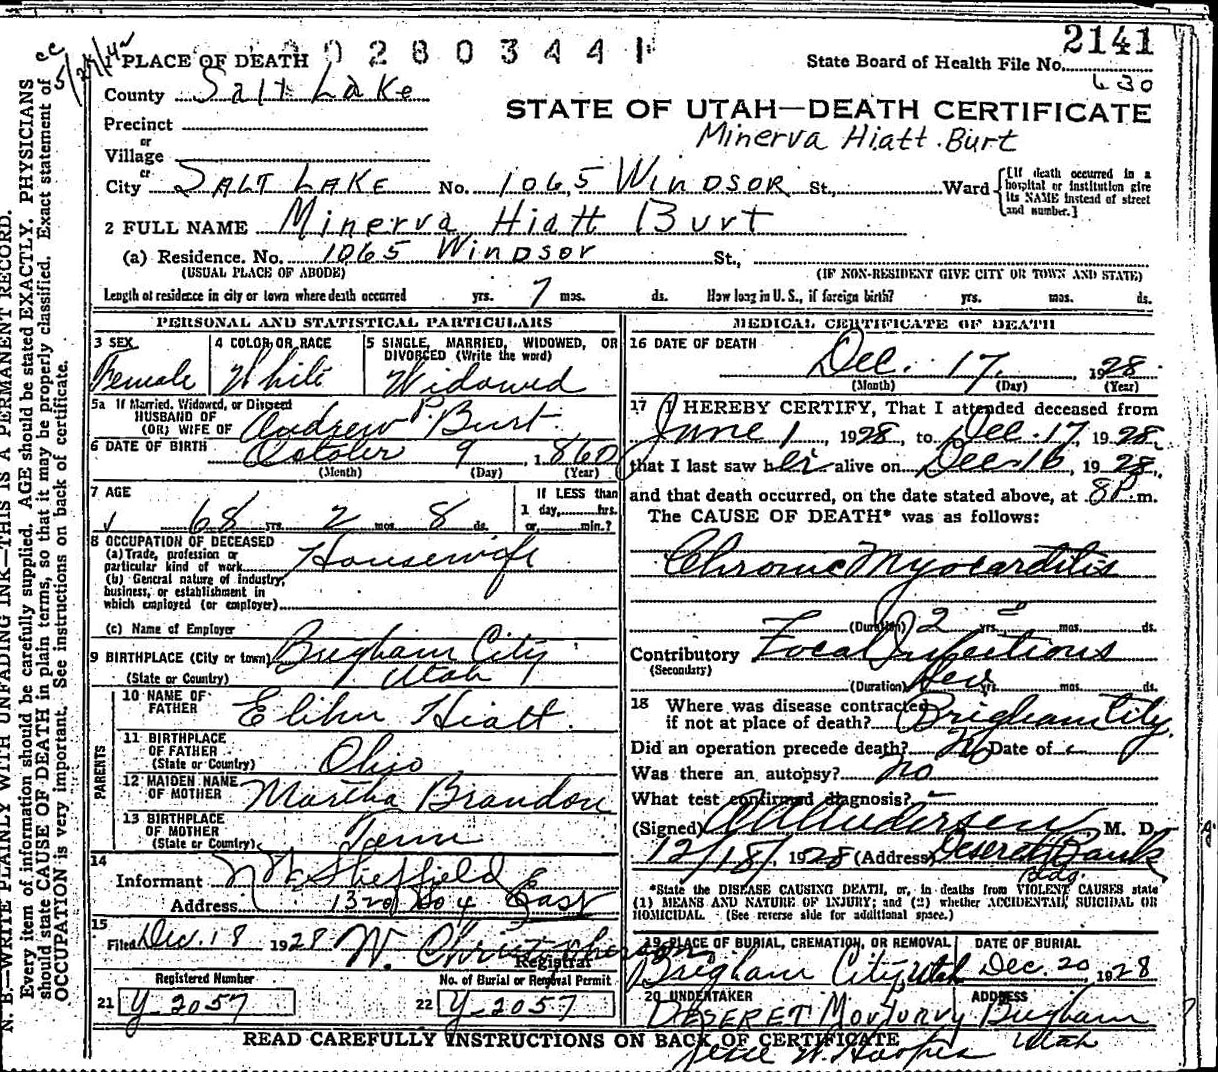 cc
5/29/42
0 0 2 8 0 3 4 4 1
2141
1 PLACE OF DEATH
State Board of Health File No.
630
County Salt Lake
STATE OF UTAH—DEATH CERTIFICATE
Precinct
Minerva Hiatt Burt
or
Village
or
City SALT LAKE No. 1065 WINDSOR St., Ward
[If death occurred in a hospital or institution give its NAME instead of street and number.]
2 FULL NAME Minerva Hiatt Burt
(a) Residence. No. 1065 Windsor St.,
(USUAL PLACE OF ABODE) (IF NON-RESIDENT GIVE CITY OR TOWN AND STATE)
Length of residence in city or town where death occurred yrs. 7 mos. ds. How long in U. S., if foreign birth? yrs. mos. ds.
PERSONAL AND STATISTICAL PARTICULARS
3 SEX 4 COLOR OR RACE 5 SINGLE, MARRIED, WIDOWED, OR DIVORCED (Write the word)
Female White Widowed
5a If Married, Widowed, or Divorced
HUSBAND OF
(OR) WIFE OF Andrew P. Burt
6 DATE OF BIRTH October 9, 1860
(Month) (Day) (Year)
7 AGE If LESS than
68 yrs. 2 mos. 8 ds. 1 day, hrs. or, min.?
8 OCCUPATION OF DECEASED
(a) Trade, profession or particular kind of work Housewife
(b) General nature of industry, business, or establishment in which employed (or employer)
(c) Name of Employer
9 BIRTHPLACE (City or town) Brigham City
(State or Country) Utah
PARENTS
10 NAME OF FATHER Elihu Hiatt
11 BIRTHPLACE OF FATHER (State or Country) Ohio
12 MAIDEN NAME OF MOTHER Martha Brandon
13 BIRTHPLACE OF MOTHER (State or Country) Tenn
14
Informant Sheffield
Address 1320 So 4 East
15
Filed Dec. 18 1928 W. Christopherson
Registrar
Registered Number No. of Burial or Removal Permit
21 Y-2057 22 Y-2057
MEDICAL CERTIFICATE OF DEATH
16 DATE OF DEATH
Dec. 17, 1928
(Month) (Day) (Year)
17 I HEREBY CERTIFY, That I attended deceased from
June 1, 1928, to Dec. 17, 1928,
that I last saw her alive on Dec. 16, 1928,
and that death occurred, on the date stated above, at 8 P. m.
The CAUSE OF DEATH* was as follows:
Chronic Myocarditis
(Duration) 2 yrs. mos. ds.
Contributory Focal Infections
(Secondary)
(Duration) yrs. mos. ds.
18 Where was disease contracted
if not at place of death? Brigham City
Did an operation precede death? No Date of
Was there an autopsy? No
What test confirmed diagnosis? –
(Signed) Andersen, M. D.
12/18/, 1928 (Address) Deseret Bank
Bldg.
*State the DISEASE CAUSING DEATH, or, in deaths from VIOLENT CAUSES state
(1) MEANS AND NATURE OF INJURY; and (2) whether ACCIDENTAL, SUICIDAL OR
HOMICIDAL. (See reverse side for additional space.)
19 PLACE OF BURIAL, CREMATION, OR REMOVAL DATE OF BURIAL
Brigham City, Utah Dec. 20, 1928
20 UNDERTAKER ADDRESS
DESERET MORTUARY Brigham
Utah
READ CAREFULLY INSTRUCTIONS ON BACK OF CERTIFICATE
Jesse W. Hooper
N. B.—WRITE PLAINLY WITH UNFADING INK—THIS IS A PERMANENT RECORD.
Every item of information should be carefully supplied. AGE should be stated EXACTLY. PHYSICIANS
should state CAUSE OF DEATH in plain terms, so that it may be properly classified. Exact statement of
OCCUPATION is very important. See instructions on back of certificate.